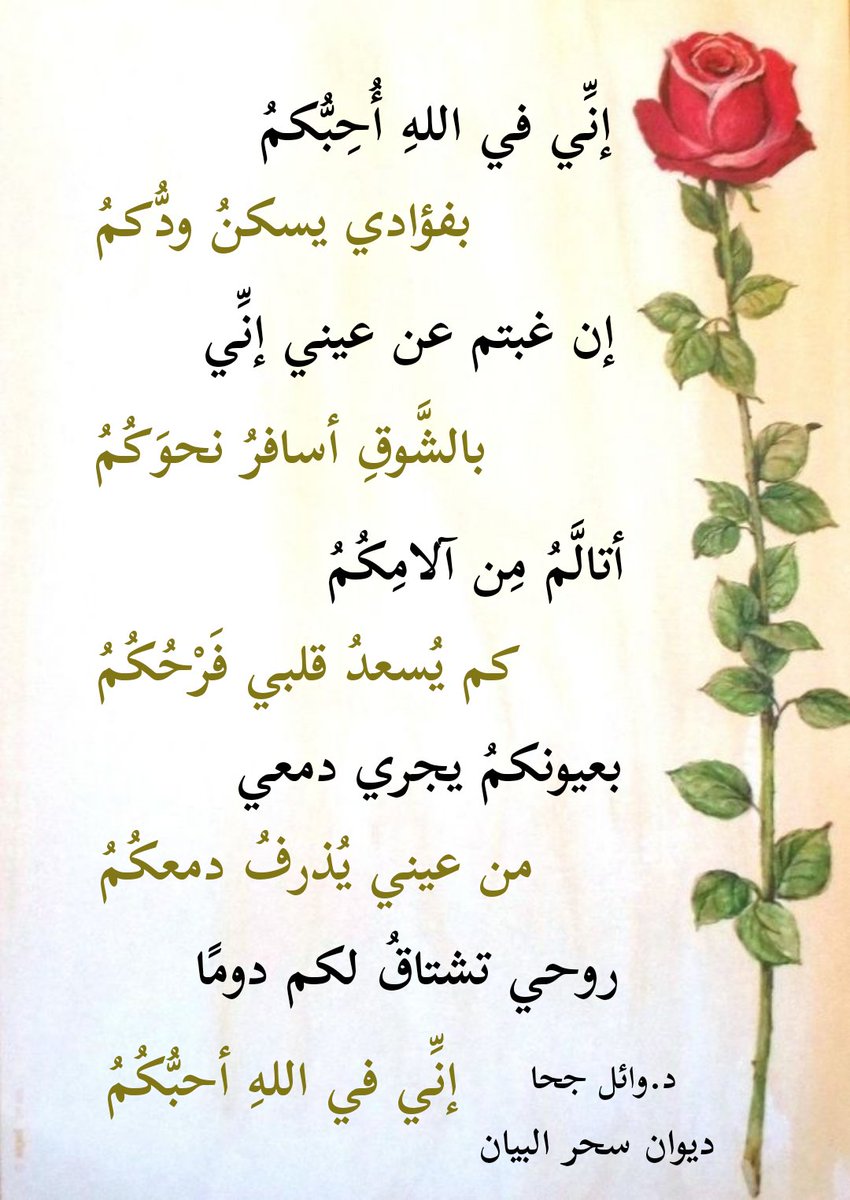 إنِّي في اللهِ أُحِبُّكمُ
بفؤادي يسكنُ ودُّكمُ
إن غبتم عن عيني إنِّي
بالشَّوقِ أسافرُ نحوَكُمُ
أتالَّمُ مِن آلامِكُمُ
كم يُسعدُ قلبي فَرْحُكُمُ
بعيونكمُ يجري دمعي
من عيني يُذرفُ دمعكُمُ
روحي تشتاقُ لكم دومًا
إنِّي في اللهِ أحبُّكُمُ
د.وائل جحا
ديوان سحر البيان